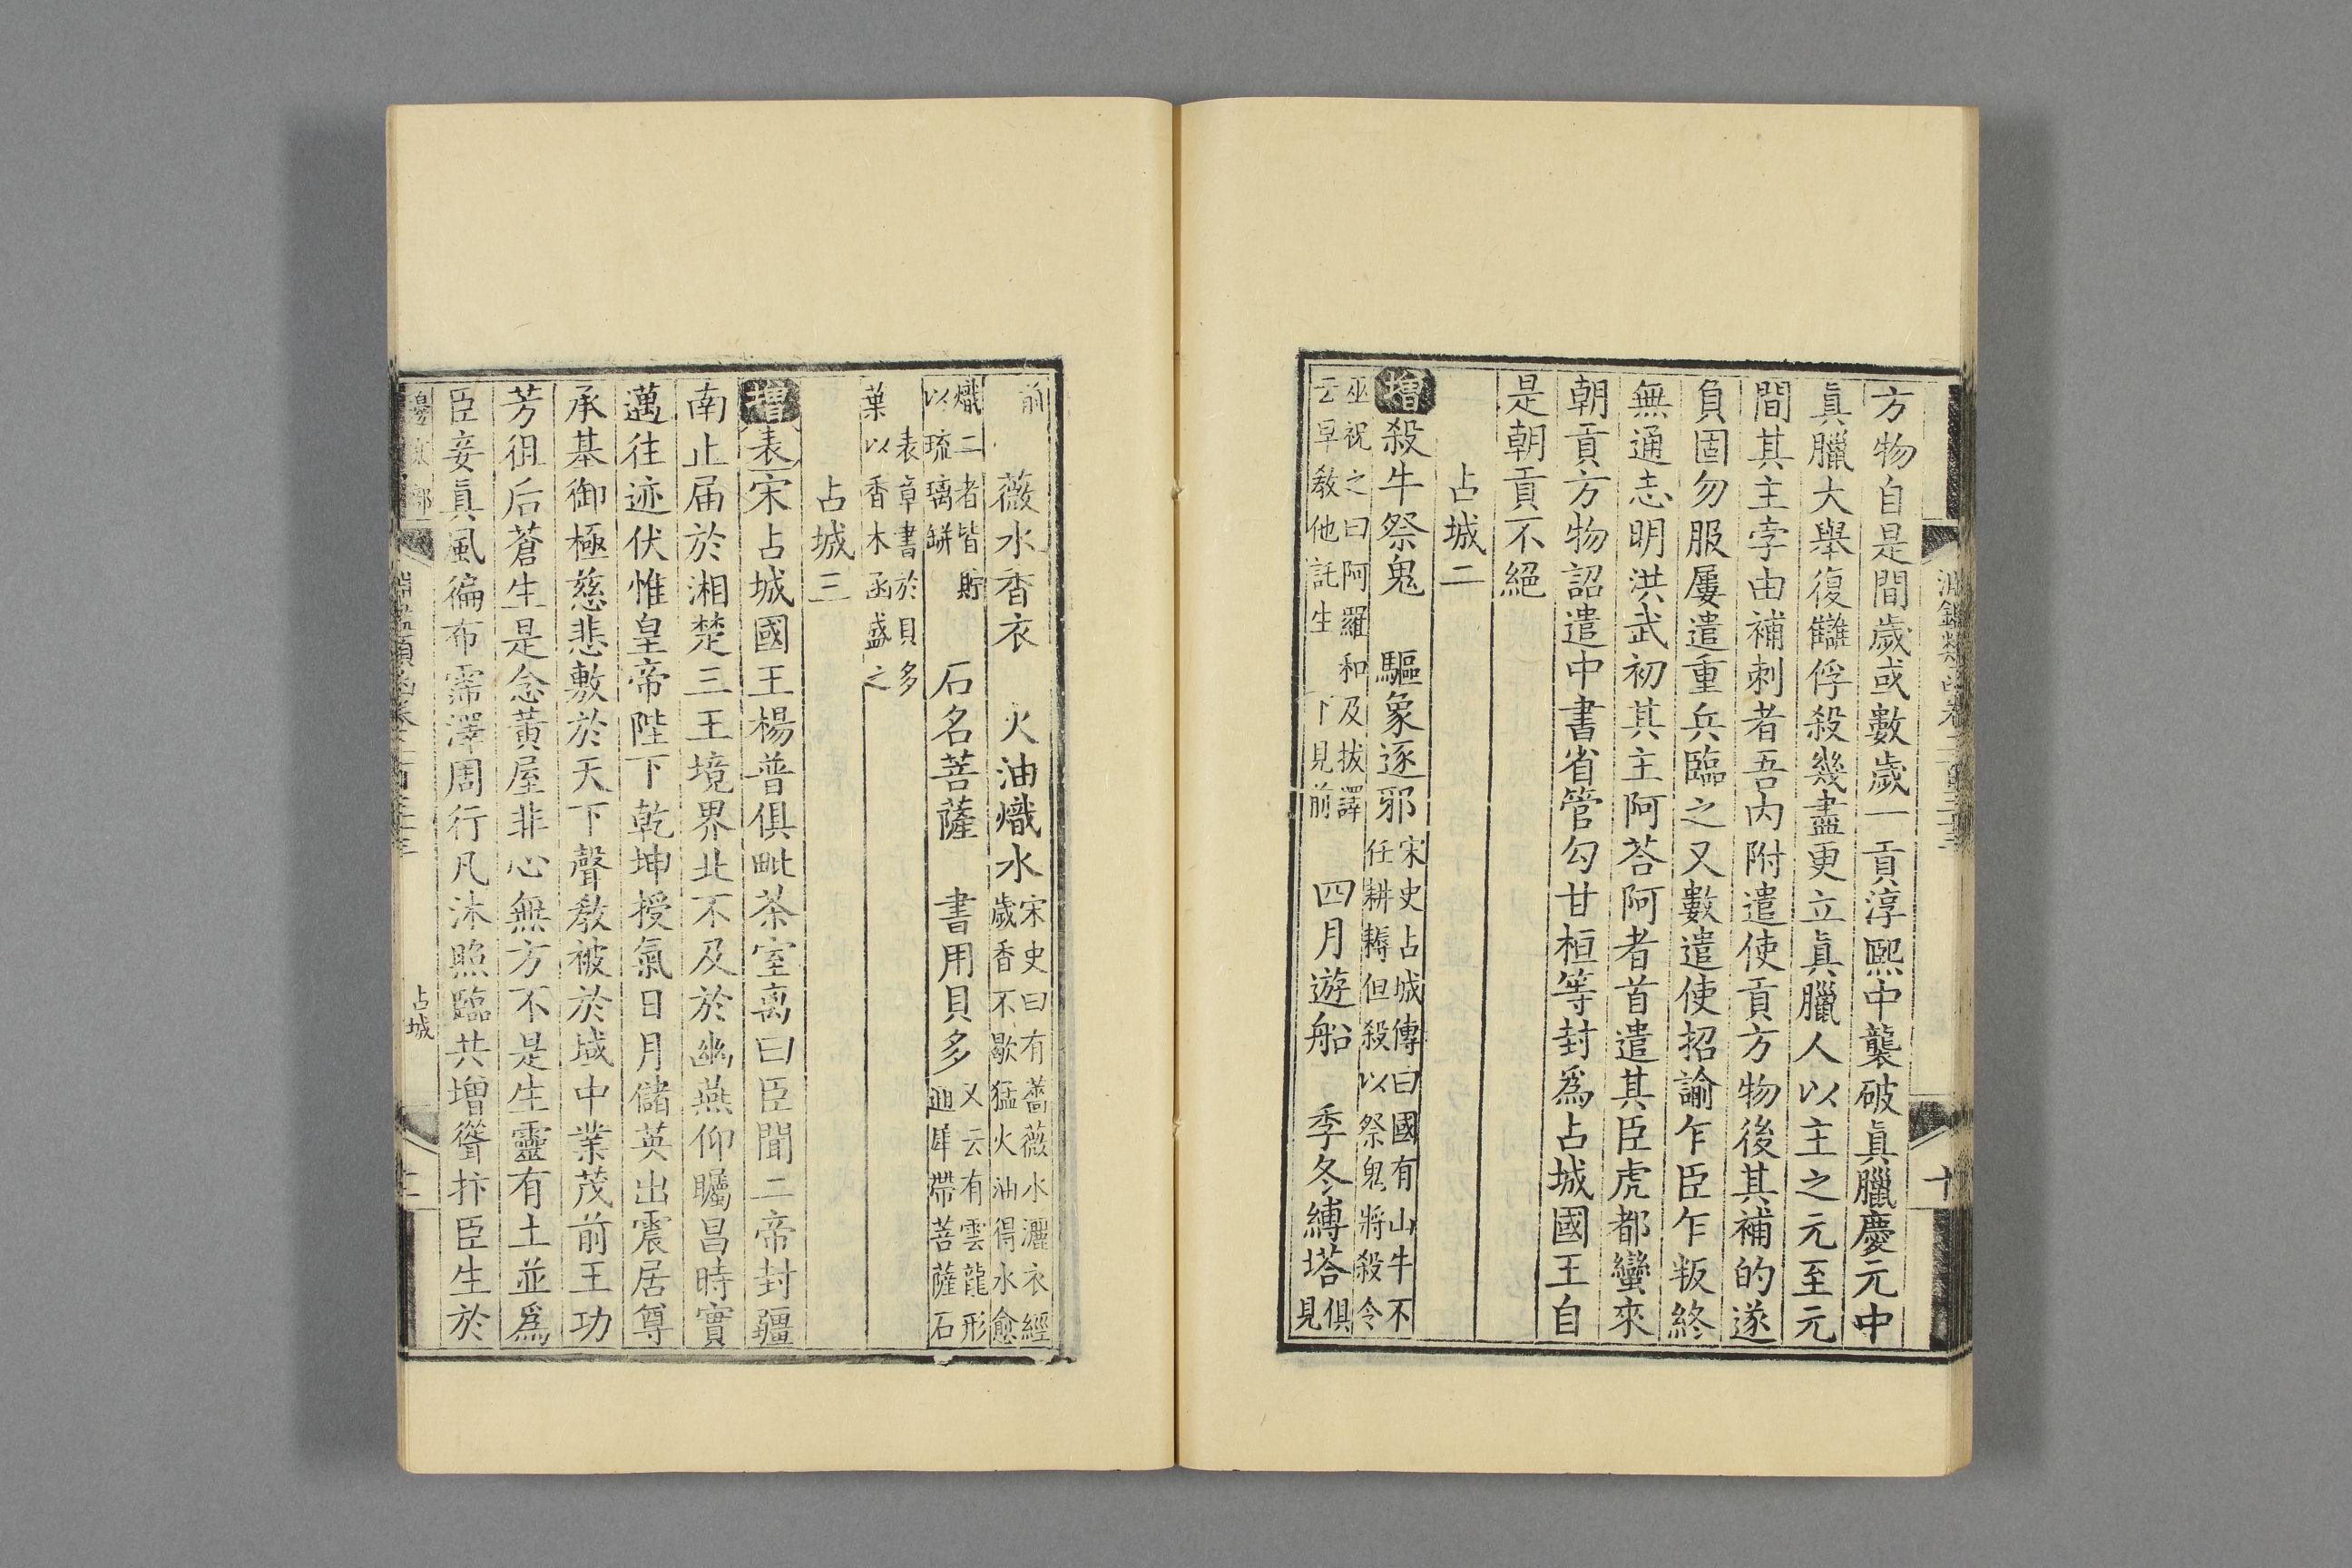 方物自是間歲或數歲一貢淳熙中襲破眞臘慶元中
眞臘大舉復讎俘殺幾盡更立眞臘人以主之元至元
間其主孛由補剌者吾內附遣使貢方物後其補的遂
負固勿服屢遣重兵臨之又數遣使招諭乍臣乍叛終
無通志明洪武初其主阿荅阿者首遣其臣虎都蠻來
朝貢方物詔遣中書省管勾甘桓等封爲占城國王自
是朝貢不絕
占城二
增殺牛祭鬼 驅象逐邪
宋史占城傳曰國有山牛不
任耕耨但殺以祭鬼將殺令
巫祝之曰阿羅和及拔譯
云早教他託生 下見前
四月遊船 季冬縛塔
俱
見
十
前
薇水香衣 火油熾水
宋史曰有薔薇水灑衣經
歲香不歇猛火油得水愈
熾二者皆貯
以琉璃缾
石名菩薩 書用貝多
又云有雲龍形
通犀帶菩薩石
表章書於貝多
葉以香木函盛之
占城三
增表宋占城國王楊普俱毗茶室离曰臣聞二帝封疆
南止届於湘楚三王境界北不及於幽燕仰矚昌時實
邁往迹伏惟皇帝陛下乾坤授氣日月儲英出震居尊
承基御極慈悲敷於天下聲教被於域中業茂前王功
芳徂后蒼生是念黃屋非心無方不是生靈有土並爲
臣妾眞風徧布霈澤周行凡沐照臨共增聳抃臣生於
占城